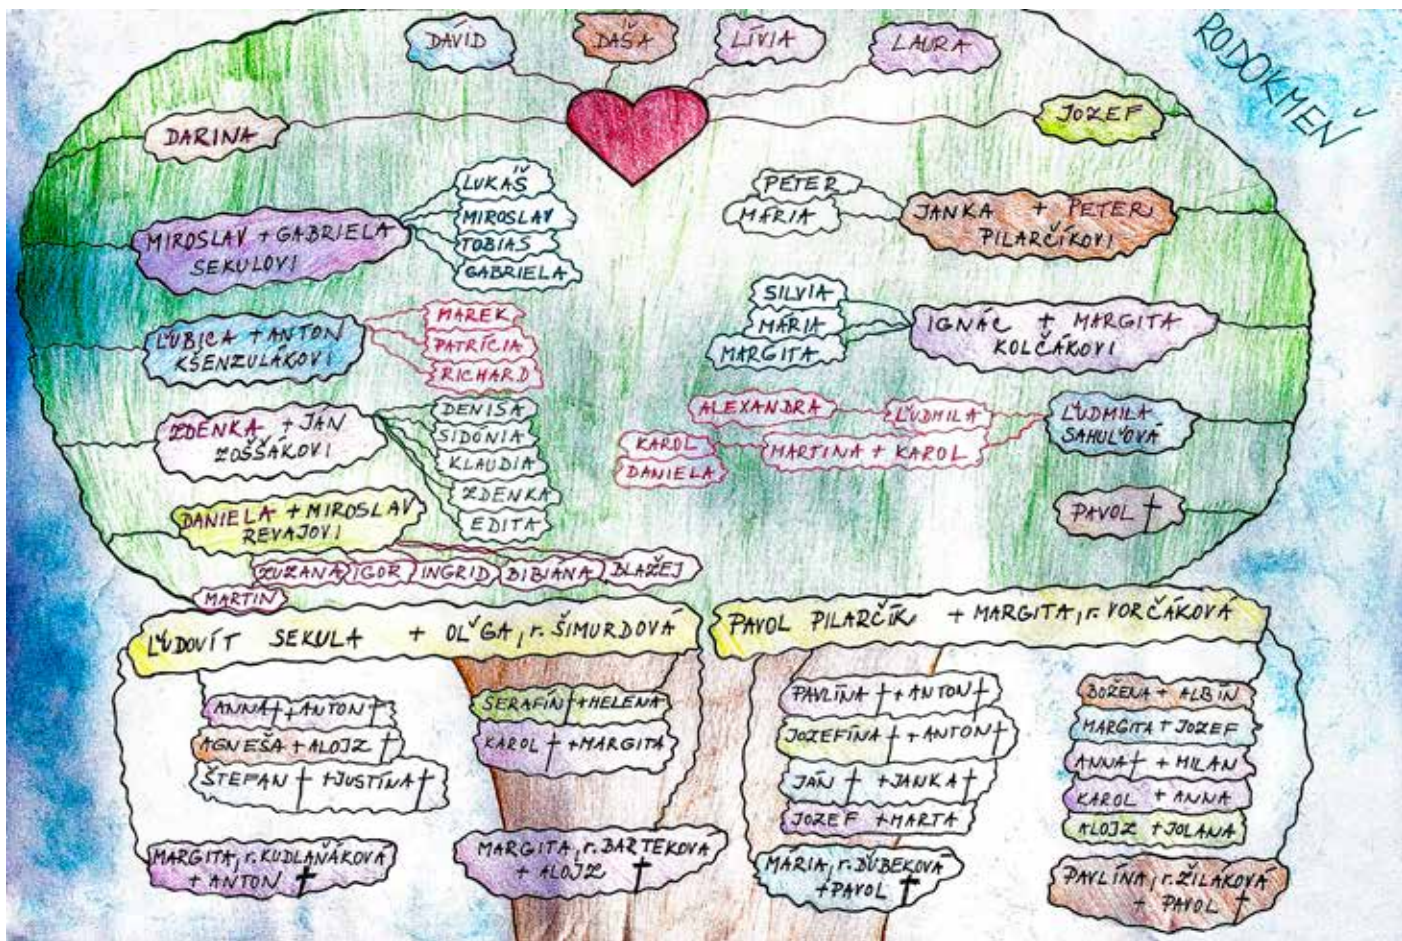 DÁVID
DAŠA
LÍVIA
LAURA
RODOKMEŇ
DARINA
JOZEF
MIROSLAV + GABRIELA
SEKULOVI
LUKÁŠ
MIROSLAV
TOBIAS
GABRIELA
PETER
MÁRIA
JANKA + PETER
PILARČÍKOVI
ĽUBICA + ANTON
KŠENZULÁKOVI
MAREK
PATRÍCIA
RICHARD
SILVIA
MÁRIA
MARGITA
IGNÁC + MARGITA
KOLČÁKOVI
ZDENKA + JÁN
ZOŠŠÁKOVI
DENISA
SIDÓNIA
KLAUDIA
ZDENKA
EDITA
ALEXANDRA
ĽUDMILA
KAROL
DANIELA
MARTINA + KAROL
ĽUDMILA
SAHUĽOVÁ
DANIELA + MIROSLAV
REVAJOVI
PAVOL †
ZUZANA IGOR INGRID BIBIANA BLAŽEJ
MARTIN
ĽUDOVÍT SEKULA + OĽGA, r. ŠIMURDOVÁ
PAVOL PILARČÍK + MARGITA, r. VORČÁKOVÁ
ANNA † + ANTON †
AGNEŠA + ALOJZ †
ŠTEFAN † + JUSTÍNA †
SERAFÍN † + HELENA
KAROL † + MARGITA
PAVLÍNA † + ANTON †
JOZEFÍNA † + ANTON †
JÁN † + JANKA †
JOZEF + MARTA
BOŽENA + ALBÍN
MARGITA + JOZEF
ANNA † + MILAN
KAROL + ANNA
ALOJZ + JOLANA
MARGITA, r. KUDLAŇÁKOVÁ
+ ANTON †
MARGITA, r. BARTEKOVÁ
+ ALOJZ †
MÁRIA, r. ĎUBEKOVÁ
+ PAVOL †
PAVLÍNA, r. ŽILÁKOVÁ
+ PAVOL †